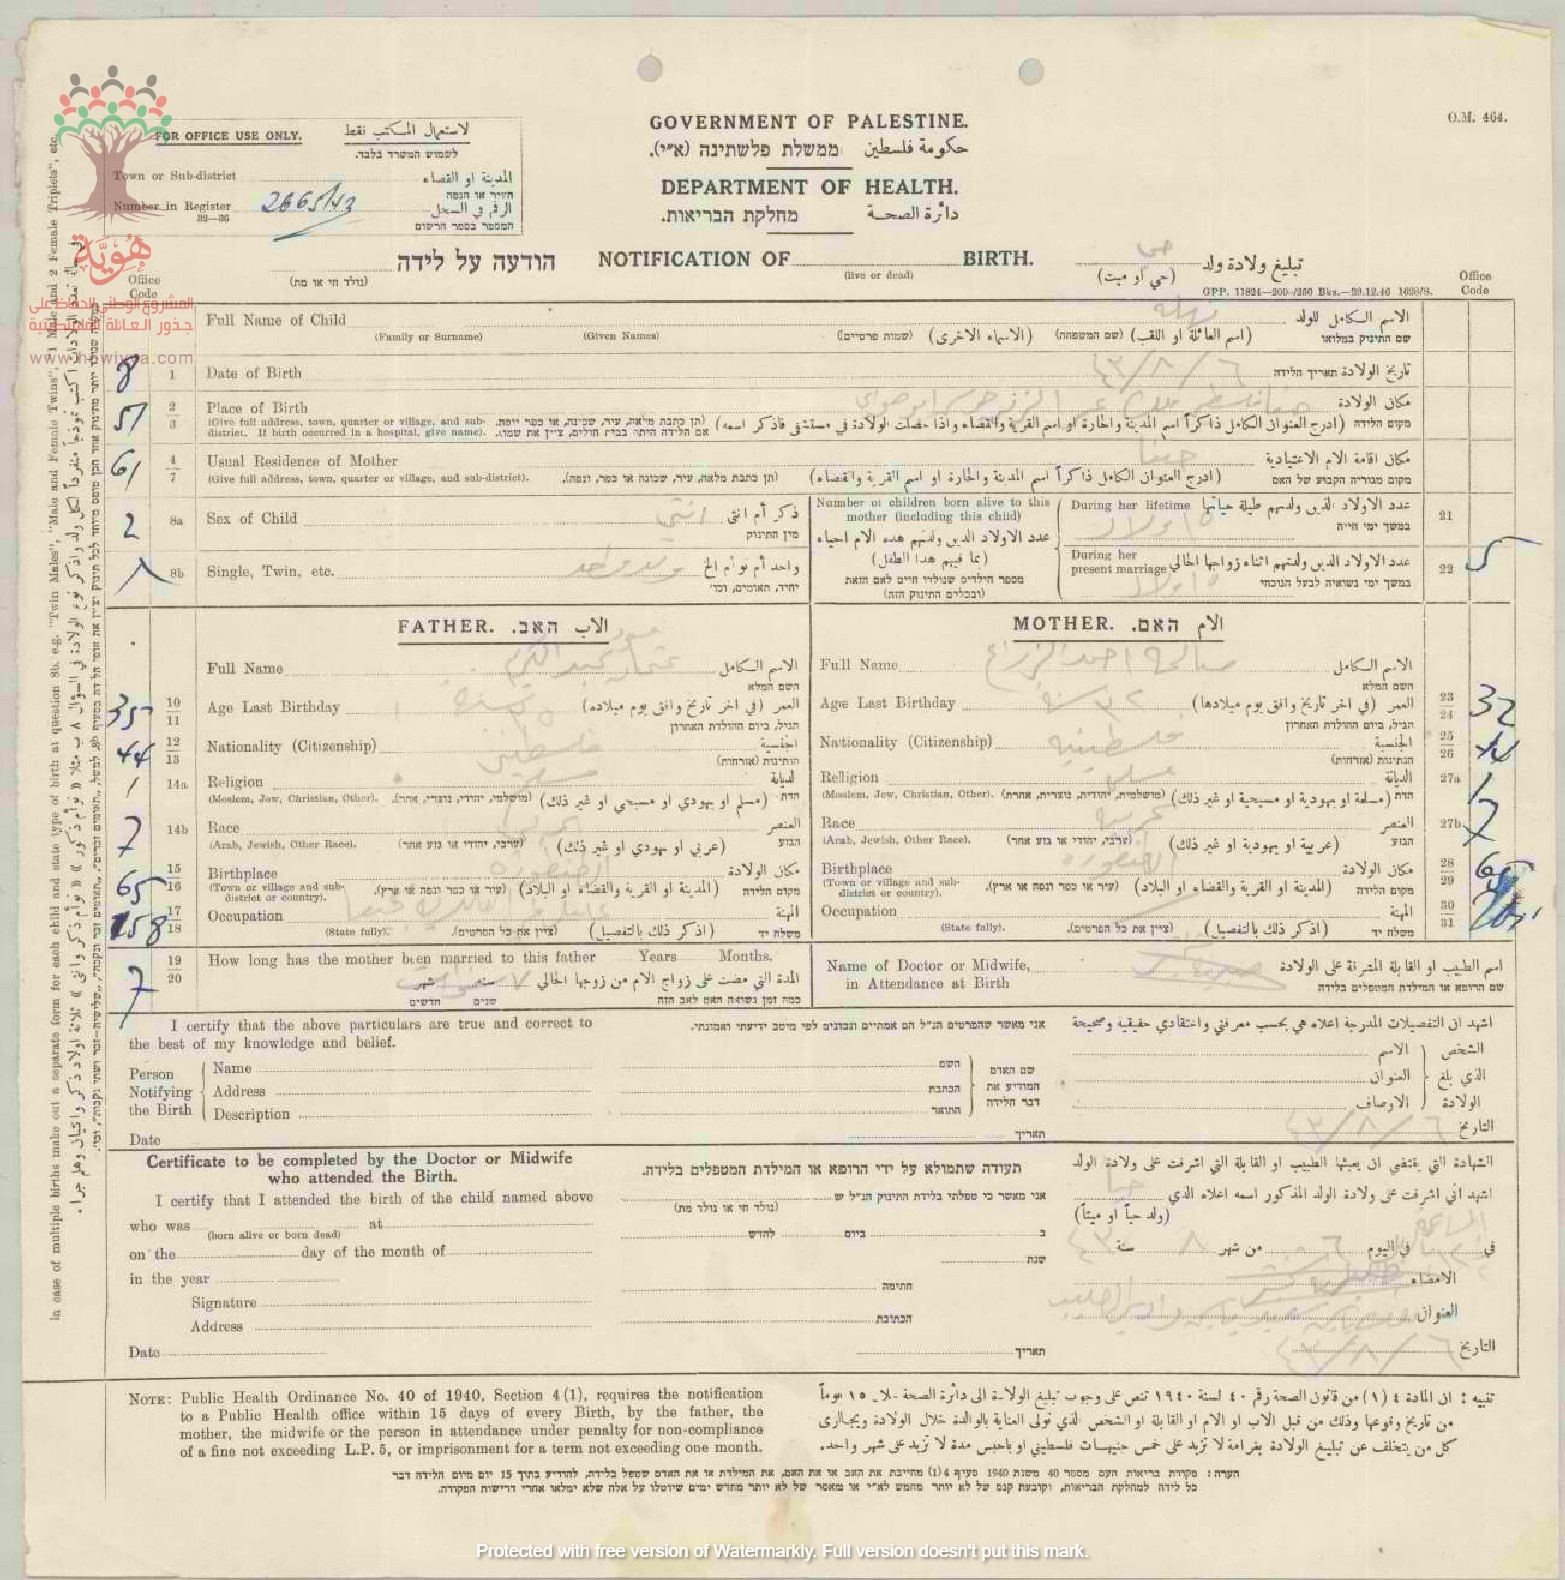 O.M. 464.
FOR OFFICE USE ONLY. لاستعمال المكتب فقط
לשמוש המשרד בלבד.
Town or Sub-district المدينة او القضاء
העיר או הנפה
Number in Register 2665/43 الرقم في السجل
32—36 המספר בספר הרשום
GOVERNMENT OF PALESTINE.
حكومة فلسطين ממשלת פלשתינה (א״י).
DEPARTMENT OF HEALTH.
دائرة الصحة מחלקת הבריאות.
הודעה על לידה NOTIFICATION OF BIRTH. تبليغ ولادة ولد حي
(נולד חי או מת) (live or dead) (حي او ميت)
GPP. 11824—200/250 Bks.—29.12.40 1628/S.
Office Code Office Code
هوية
المشروع الوطني للحفاظ على
جذور العائلة الفلسطينية
www.howiyya.com
Full Name of Child الاسم الكامل للولد
(Family or Surname) (Given Names) (שמות פרטיים) (الاسماء الاخرى) (שם המשפחה) (اسم العائلة او اللقب) שם התינוק במלואו
8 1 Date of Birth ٦/٨/٤٣ تاريخ الولادة תאריך הלידה
51 2 3 Place of Birth مكان الولادة
(Give full address, town, quarter or village, and sub-district. If birth occurred in a hospital, give name). (תן כתבת מלאה, עיר, שכונה, או כפר ונפה. אם הלידה היתה בבית חולים, ציין את שמו). (ادرج العنوان الكامل ذاكراً اسم المدينة والحارة او اسم القرية والقضاء واذا حصلت الولادة في مستشفى فاذكر اسمه) מקום הלידה
61 4 7 Usual Residence of Mother حيفا مكان اقامة الام الاعتيادية
(Give full address, town, quarter or village, and sub-district). (תן כתבת מלאה, עיר, שכונה או כפר, ונפה). (ادرج العنوان الكامل ذاكراً اسم المدينة والحارة او اسم القرية والقضاء) מקום מגוריה הקבוע של האם
2 8a Sex of Child انثى ذكر أم انثى
מין התינוק
8b Single, Twin, etc. ولد واحد واحد أم توأم الخ
יחיד, תאומים, וכו׳
Number of children born alive to this mother (including this child)
عدد الاولاد الذين ولدتهم هذه الام احياء
(بما فيهم هذا الطفل)
מספר הילדים שנולדו חיים לאם הזאת
(ובכללם התינוק הזה)
During her lifetime ٥ اولاد عدد الاولاد الذين ولدتهم طيلة حياتها 21
במשך ימי חייה
During her present marriage ٥ اولاد عدد الاولاد الذين ولدتهم اثناء زواجها الحالي 22 5
במשך ימי נשואיה לבעל הנוכחי
FATHER. الاب האב.
Full Name الاسم الكامل
השם המלא
35 10 11 Age Last Birthday ٣٥ سنة العمر (في آخر تاريخ وافق يوم ميلاده)
הגיל, ביום ההולדת האחרון
44 12 13 Nationality (Citizenship) فلسطيني الجنسية
הנתינות (אזרחות)
1 14a Religion مسلم الديانة
(Moslem, Jew, Christian, Other). (מושלמי, יהודי, נוצרי, אחר). (مسلم او يهودي او مسيحي او غير ذلك) הדת
7 14b Race عربي العنصر
(Arab, Jewish, Other Race). (ערבי, יהודי או גזע אחר) (عربي او يهودي او غير ذلك) הגזע
65 15 16 Birthplace الطنطورة مكان الولادة
(Town or village and sub-district or country). (עיר או כפר ונפה או ארץ). (المدينة او القرية والقضاء او البلاد) מקום הלידה
158 17 18 Occupation المهنة
(State fully). (ציין את כל הפרטים). (اذكر ذلك بالتفصيل) משלח יד
MOTHER. الام האם.
Full Name صالحة احمد الزراع الاسم الكامل
השם המלא
Age Last Birthday ٣٢ سنة العمر (في آخر تاريخ وافق يوم ميلادها) 23 24 32
הגיל, ביום ההולדת האחרון
Nationality (Citizenship) فلسطينية الجنسية 25 26 44
הנתינות (אזרחות)
Religion مسلمة الديانة 27a 1
(Moslem, Jew, Christian, Other). (מושלמית, יהודית, נוצרית, אחרת). (مسلمة او يهودية او مسيحية او غير ذلك) הדת
Race عربية العنصر 27b 7
(Arab, Jewish, Other Race). (ערבי, יהודי או גזע אחר) (عربية او يهودية او غير ذلك) הגזע
Birthplace الطنطورة مكان الولادة 28 29 65
(Town or village and sub-district or country). (עיר או כפר ונפה או ארץ). (المدينة او القرية والقضاء او البلاد) מקום הלידה
Occupation المهنة 30 31
(State fully). (ציין את כל הפרטים). (اذكر ذلك بالتفصيل) משלח יד
7 19 20 How long has the mother been married to this father Years Months.
المدة التي مضت على زواج الام من زوجها الحالي ٧ سنين شهر
כמה זמן נשואה האם לאב הזה שנים חדשים
Name of Doctor or Midwife, in Attendance at Birth اسم الطبيب او القابلة المشرفة على الولادة
שם הרופא או המילדת המטפלים בלידה
I certify that the above particulars are true and correct to the best of my knowledge and belief.
אני מאשר שהפרטים הנ״ל הם אמתיים ונכונים לפי מיטב ידיעתי ואמונתי.
اشهد ان التفصيلات المدرجة اعلاه هي بحسب معرفتي واعتقادي حقيقية وصحيحة
Person Notifying the Birth Name השם שם האדם المودיע את דבר הלידה الاسم الشخص
Address הכתבת العنوان الذي بلغ
Description התואר الاوصاف الولادة
Date תאריך ٦/٨/٤٣ التاريخ
Certificate to be completed by the Doctor or Midwife who attended the Birth.
תעודה שתמולא על ידי הרופא או המילדת המטפלים בלידה.
الشهادة التي يقتضي ان يعبئها الطبيب او القابلة التي اشرفت على ولادة الولد
I certify that I attended the birth of the child named above
אני מאשר כי טפלתי בלידת התינוק הנ״ל ש
اشهد اني اشرفت على ولادة الولد المذكور اسمه اعلاه الذي حياً
who was at (נולד חי או נולד מת) (ولد حياً او ميتاً)
(born alive or born dead)
on the day of the month of ב ביום לחדש في في اليوم ٦ من شهر ٨ سنة ٤٣
in the year שנת
Signature חתימה الامضاء
Address הכתובת العنوان
Date תאריך ٦/٨/٤٣ التاريخ
NOTE: Public Health Ordinance No. 40 of 1940, Section 4 (1), requires the notification
to a Public Health office within 15 days of every Birth, by the father, the
mother, the midwife or the person in attendance under penalty for non-compliance
of a fine not exceeding L.P. 5, or imprisonment for a term not exceeding one month.
تنبيه : ان المادة ٤ (١) من قانون الصحة رقم ٤٠ لسنة ١٩٤٠ تنص على وجوب تبليغ الولادة الى دائرة الصحة خلال ١٥ يوماً
من تاريخ وقوعها وذلك من قبل الاب او الام او القابلة او الشخص الذي تولى العناية بالوالدة خلال الولادة ويجازى
كل من يتخلف عن تبليغ الولادة بغرامة لا تزيد على خمس جنيهات فلسطيني او بالحبس مدة لا تزيد على شهر واحد.
הערה : פקודת בריאות העם מספר 40 משנת 1940 סעיף 4 (1) מחייבת את האב או את האם, את המילדת או את האדם שטפל בלידה, להודיע בתוך 15 יום מיום הלידה דבר
כל לידה למחלקת הבריאות, וקובעת קנס של לא יותר מחמש לא״י או מאסר של לא יותר מחדש ימים שיוטלו על אלה שלא ימלאו אחרי דרישות הפקודה.
In case of multiple births make out a separate form for each child and state type of birth at question 8b. e.g. "Twin Males", "Male and Female Twins", "1 Male and 2 Female Triplets", etc.
Protected with free version of Watermarkly. Full version doesn't put this mark.